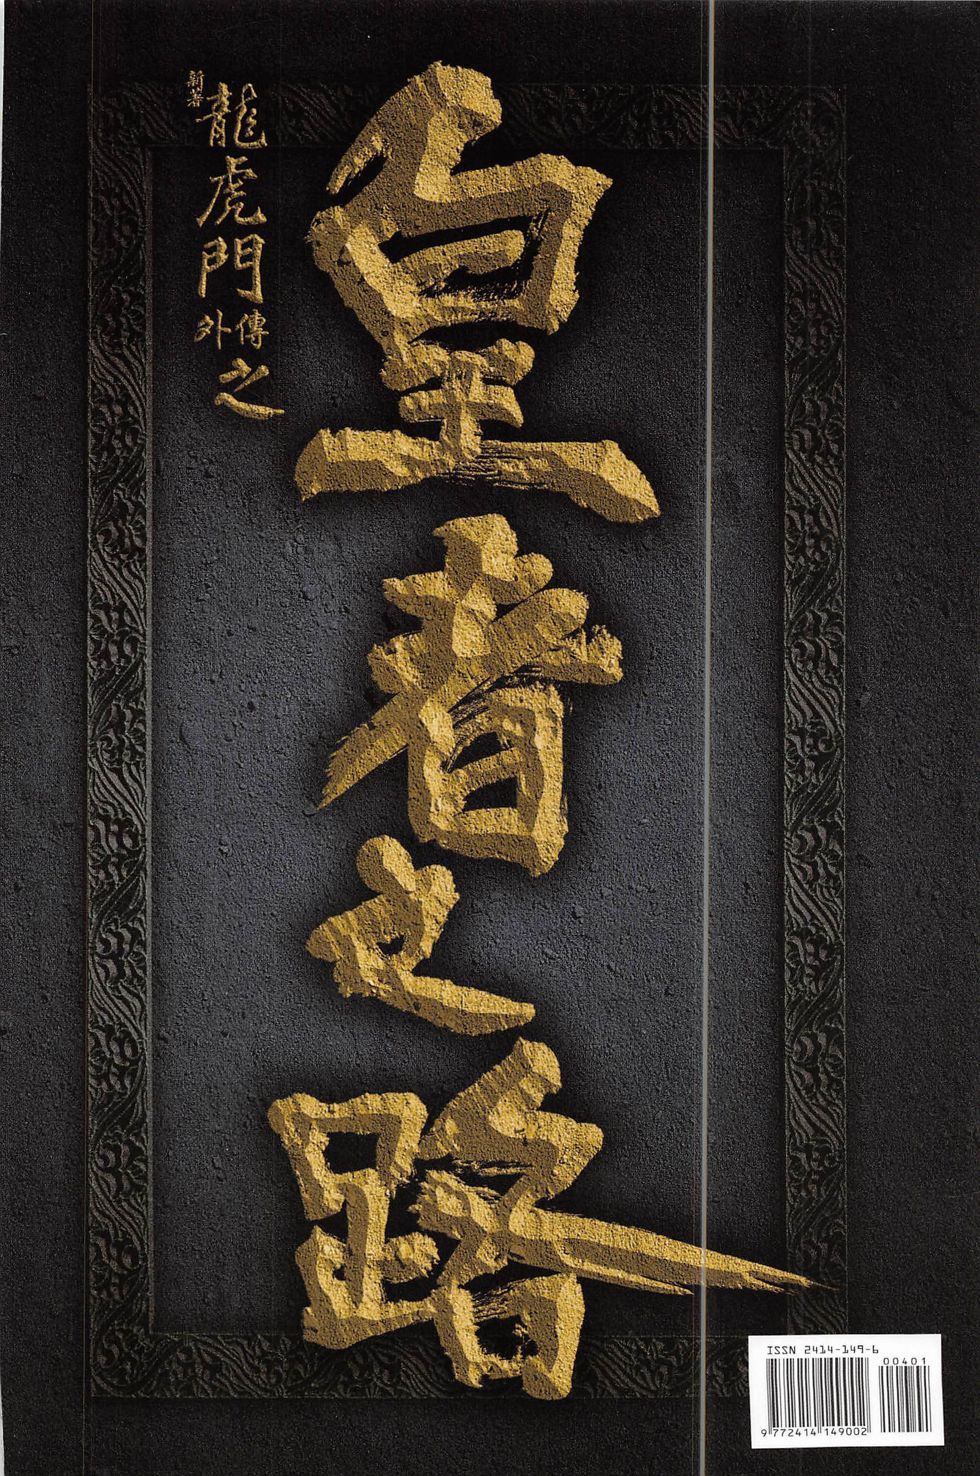 新著
龍虎門
外傳之
皇者之路
ISSN 2414-149-6
00401
9 772414 149002